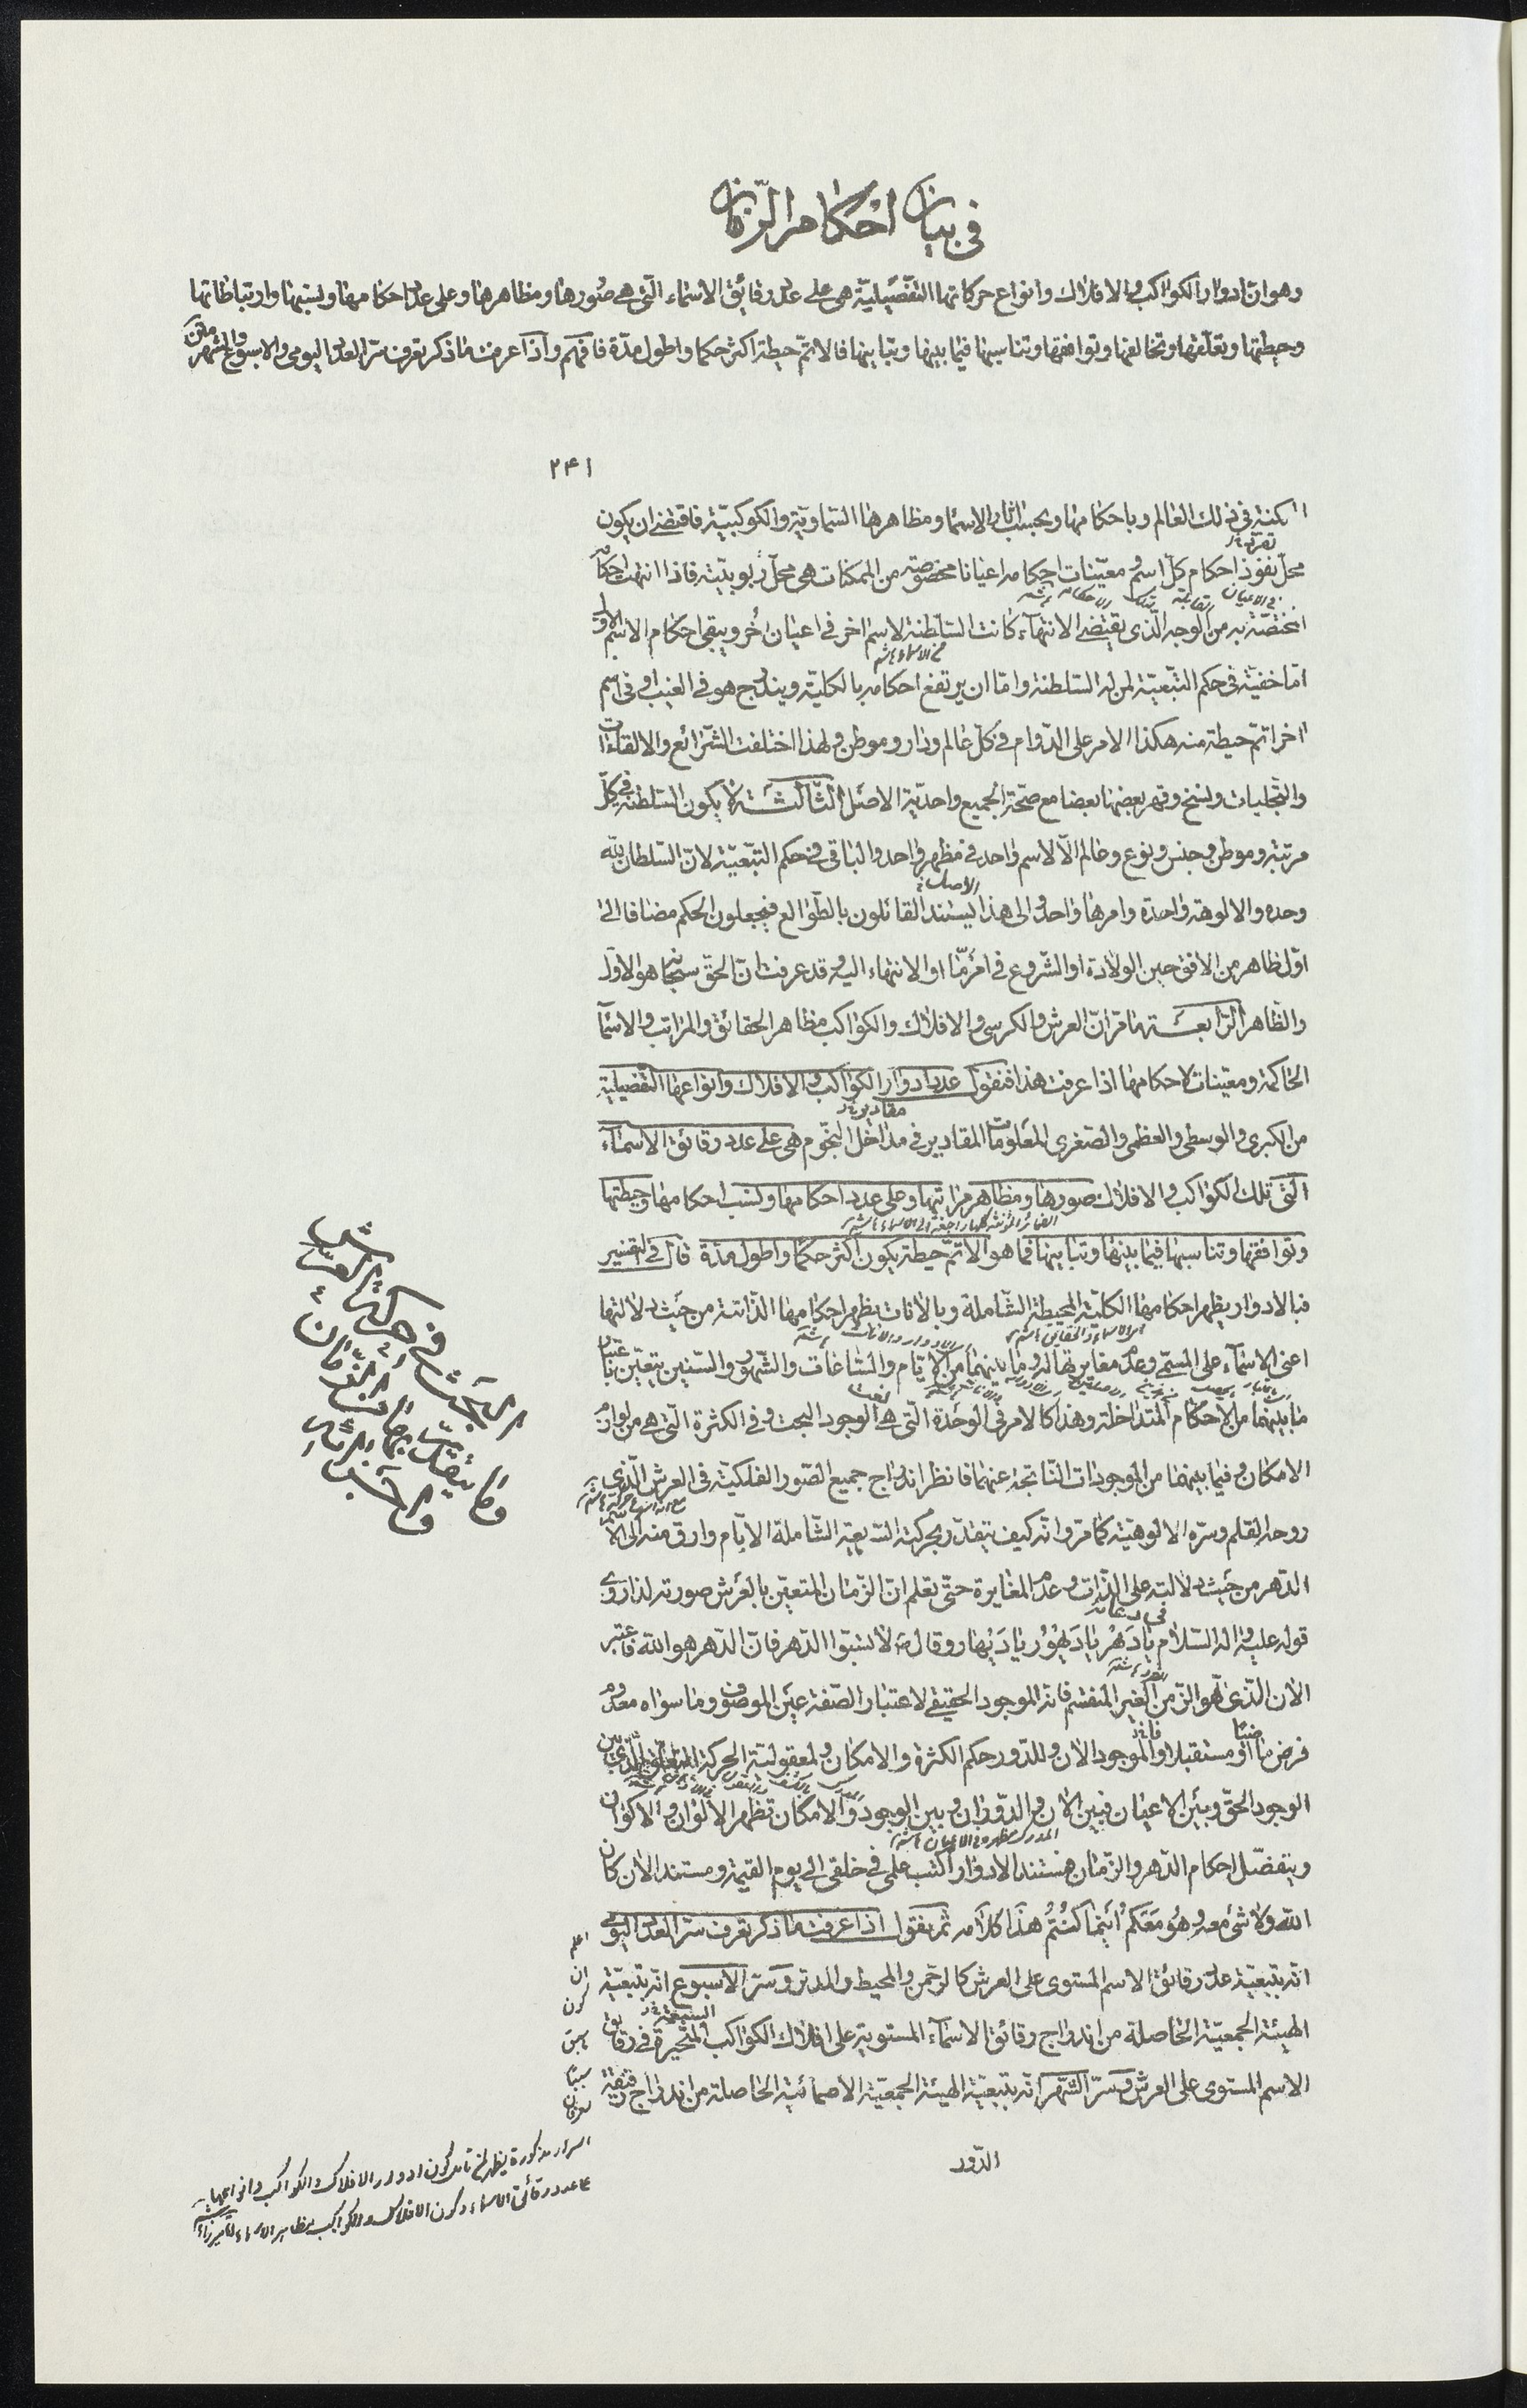 في بيان احكام الزمان
وهو ان ادوار الكواكب والافلاك وانواع حركاتها التفصيلية هي على عدد رقائق الاسماء التي هي صورها ومظاهرها وعلى عدد احكامها ونسبها وارتباطاتها
وحيطتها وتعلقها وتخالفها وتوافقها وتناسبها فيما بينها وتباينها فالاتم حيطة اكثر حكما واطول مدة فافهم واذا عرفت ما ذكر تعرف سر العدد اليومي والاسبوع والشهر
۲۴۱
في ذلك العالم وباحكامها وبحسب آثار الاسماء ومظاهرها السماوية والكوكبية فاقتضى ان يكون
محل نفوذ احكام كل اسم ومعينات احكامه اعيانا مخصوصة من الممكنات هي محل ربوبيته فاذا انتهت احكامه
المختصة به من الوجه الذي يقتضي الانتهاء كانت السلطنة لاسم اخر في اعيان اخر ويبقى احكام الاسم الاول
اما خفية في حكم التبعية لمن له السلطنة واما ان يرتفع احكامه بالكلية ويندرج هو في الغيب او في اسم
اخر اتم حيطة منه هكذا الامر على الدوام في كل عالم ودار وموطن ولهذا اختلفت الشرائع والالقاءات
والتجليات ونسخ وقهر بعضها بعضا مع صحة الجميع واحدية الاصل الثالثة لا يكون السلطنة في كل
مرتبة وموطن وجنس ونوع وعالم الا لاسم واحد في مظهر واحد والباقي في حكم التبعية لان السلطان لله
وحده والالوهة واحدة وامرها واحد والى هذا الاصل يستند القائلون بالطوالع فيجعلون الحكم مضافا الى
اول ظاهر من الافق حين الولادة او الشروع في امر ما او الانتهاء اليه وقد عرفت ان الحق سبحانه هو الاول
والظاهر الرابعة ما مر ان العرش والكرسي والافلاك والكواكب مظاهر الحقائق والمراتب والاسماء
الحاكمة ومعينات لاحكامها اذا عرفت هذا فنقول عدد ادوار الكواكب والافلاك وانواعها التفصيلية
من الكبرى والوسطى والعظمى والصغرى المعلومات المقادير في مداخل النجوم هي على عدد رقائق الاسماء
التي تلك الكواكب والافلاك صورها ومظاهر مراتبها وعلى عدد احكامها ونسب احكامها وحيطتها
وتوافقها وتناسبها فيما بينها وتباينها فما هو الاتم حيطة يكون اكثر حكما واطول مدة قال في التفسير
فبالادوار يظهر احكامها الكلية المحيطة الشاملة وبالآنات يظهر احكامها الذاتية من حيث دلالتها
اعني الاسماء على المسمى وعدم مغايرتها له وما بينهما من الايام والساعات والشهور والسنين يتعين باعتبار
ما بينهما من الاحكام المتداخلة وهذا كالامر في الوحدة التي هي نعت الوجود البحت وفي الكثرة التي هي من لوازم
الامكان وفيما بينهما من الموجودات الناتجة عنهما فانظر اندراج جميع الصور الفلكية في العرش الذي
روحه القلم وسره الالوهية كما مر وانه كيف يتقدر بحركته السريعة الشاملة الايام وارق منه الى الاسم
الدهر من حيث دلالته على الذات وعدم المغايرة حتى تعلم ان الزمان المتعين بالعرش صورته لذا روى
قوله عليه واله السلام يا دهر يا ديهور يا ديهار وقال ص لا تسبوا الدهر فان الدهر هو الله فاعتبر
الآن الذي هو الزمن الغير المنقسم فانه الموجود الحقيقي لاعتبار الصفة عين الموصوف وما سواه معدوم
فرض ماضيا او مستقبلا والموجود الآن وللدور حكم الكثرة والامكان ولمعقولية الحركة التعلق الذي بين
الوجود الحق وبين الاعيان فبين الآن والدوران وبين الوجود والامكان تظهر الالوان والاكوان
ويتفصل احكام الدهر والزمان فمستند الادوار اكتب علمي في خلقي الى يوم القيمة ومستند الآن كان
الله ولا شيء معه وهو معكم اينما كنتم هذا كلامه ثم نقول اذا عرفت ما ذكر تعرف سر العدد اليومي
انه بتبعية عدد رقائق الاسم المستوي على العرش كالرحمن والمحيط والمدبر وسر الاسبوع انه بتبعية
الهيئة الجمعية الحاصلة من اندراج رقائق الاسماء المستوية على افلاك الكواكب السبعة المتحيرة في رقائق
الاسم المستوي على العرش وسر الشهر انه بتبعية الهيئة الجمعية الاسمائية الحاصلة من اندراج
الدور
البحث في حركة العرش
وما يتقدر بها من الزمان
اعلم
ان
كون
اسرار مذكورة يظهر من كون ادوار الافلاك والكواكب وانواعها
على عدد رقائق الاسماء وكون الافلاك والكواكب مظاهر الاسماء